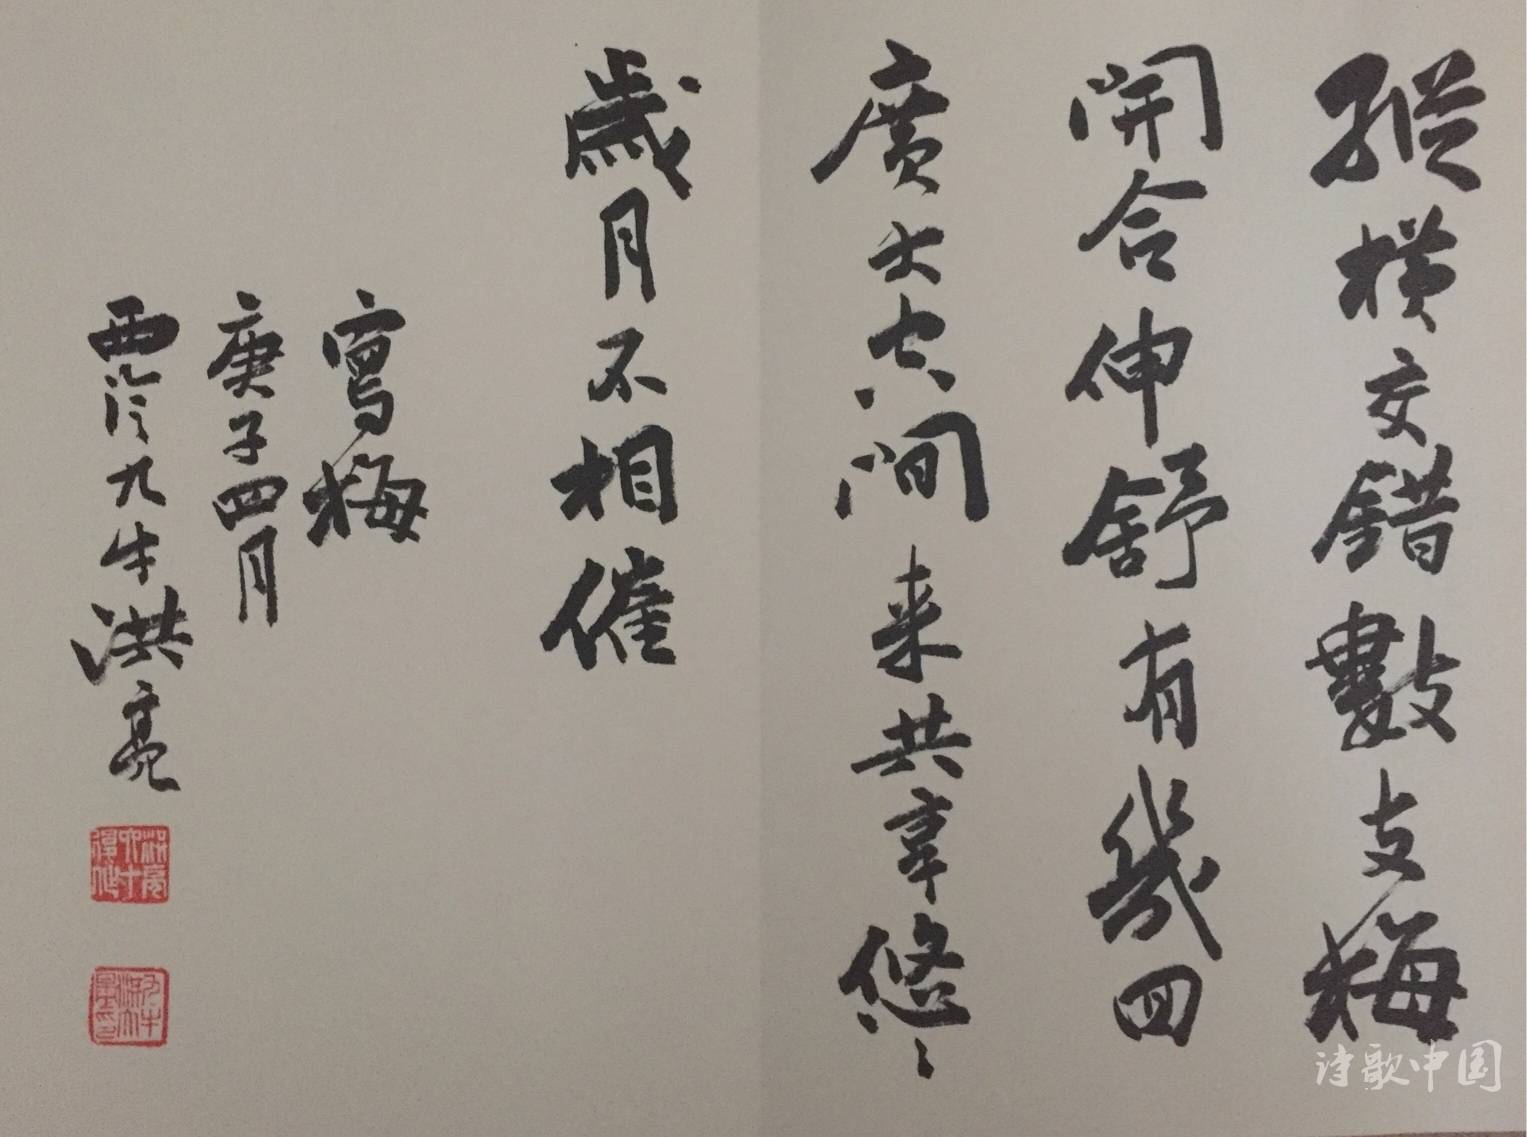 縱橫交錯數支梅
開合伸舒有幾四
廣大空間来共享悠々
歲月不相催
寫梅
庚子四月
西泠九牛洪亮
洪亮六十後作
诗歌中国